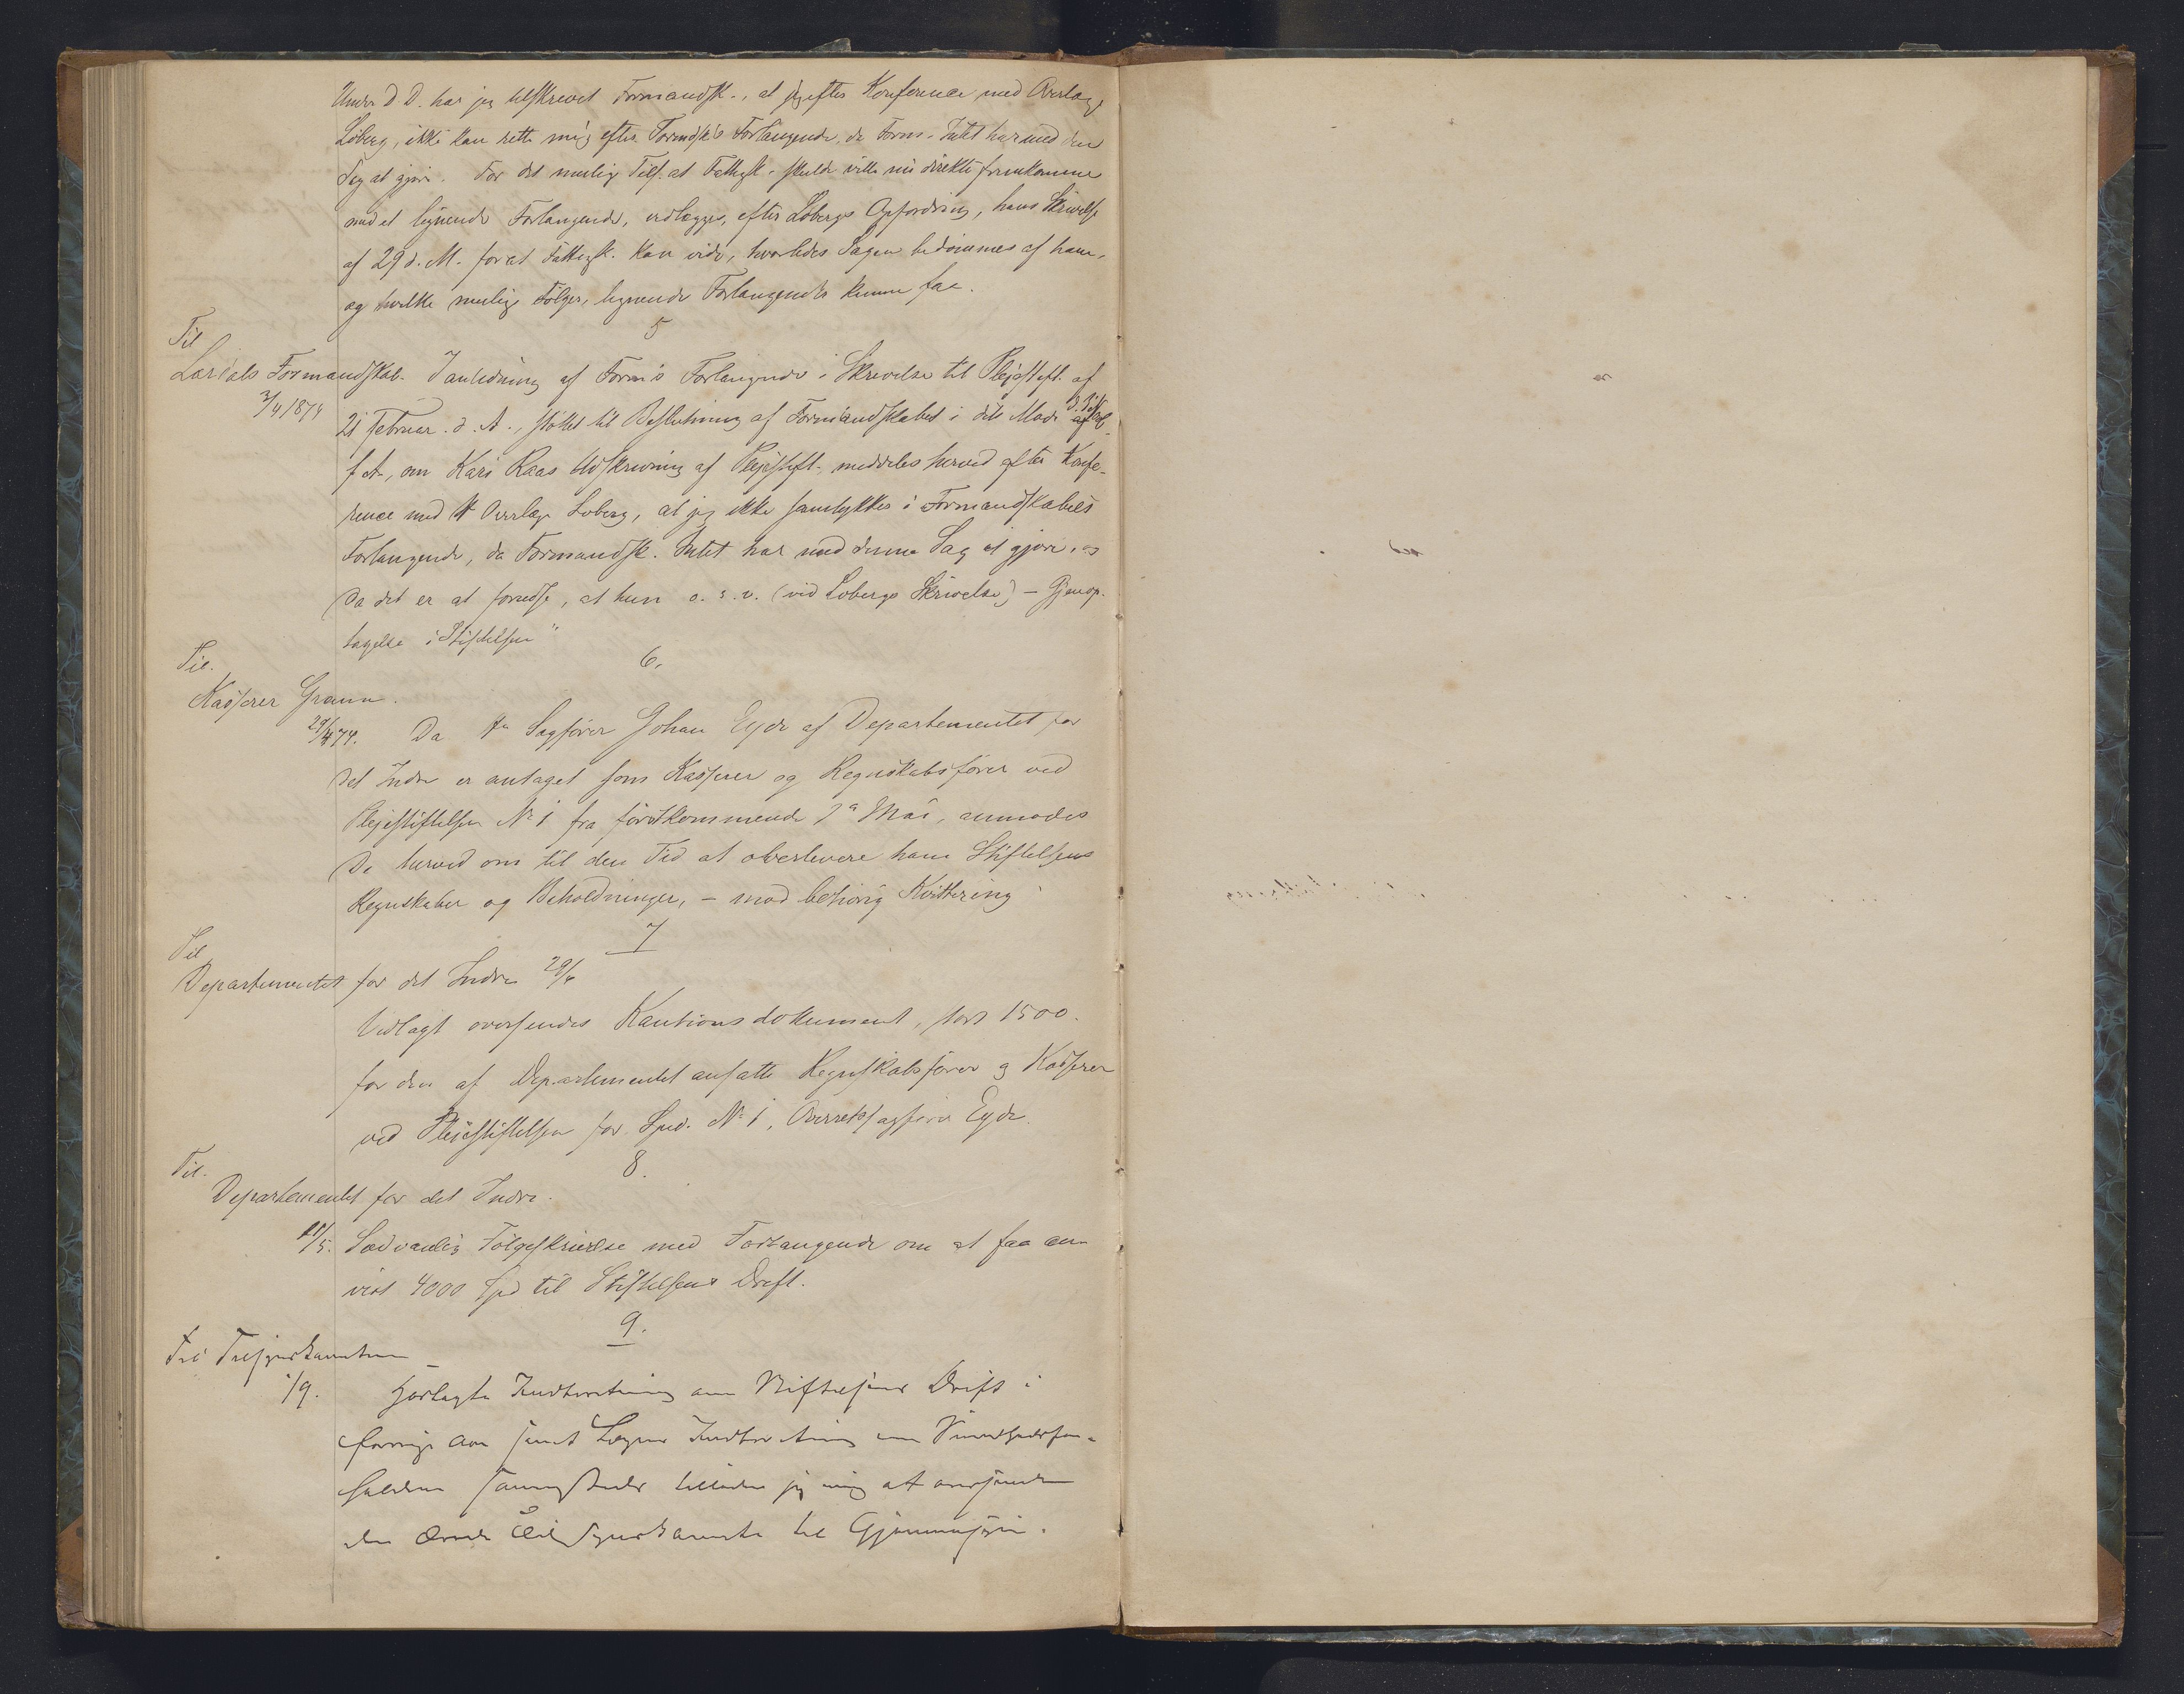 Under D D. har jeg tilskrevet Formandsk., at jeg efter Konference med Overlæge
Løberg, ikke kan rette mig efter Formdsk's Forlangende, da Form. Intet har med den
Sag at gjøre. For det mulig Tilf. at Fattigk. skulde ville nu direkte fremkomme
med et lignende Forlangende, vedlægges, efter Løbergs Opfordring, hans Skrivelse
af 29 d. M. for at Fattigk. kan vide, hvorledes Sagen bedømmes af ham,
og hvilke mulige Følger, lignende Forlangender kunne faa.
5
Til
Lærdals Formandskab. I anledning af Form's Forlangende i Skrivelse til Plejestift. af
2/4 1874
21 Februar d. A., støttet til Beslutning af Formandskabet i dets Møde
f. A., om Kari Raas Udskrivning af Plejestift., meddeles herved efter Konfe-
rence med Hr Overlæge Løberg, at jeg ikke samtykkes i Formandskabets
Forlangende, da Formandsk. Intet har med denne Sag at gjøre, og
da det er at forudse, at hun o. s. v. (vid Løbergs Skrivelse) – Gjenop-
tagelse i Stiftelsen"
6.
Til.
Kasserer Grann.
29/4 74. Da Hr Sagfører Johan Eyde af Departementet for
det Indre er antaget som Kasserer og Regnskabsfører ved
Plejestiftelsen No 1 fra førstkommende 1a Mai, anmodes
De herved om til den Tid at overlevere ham Stiftelsens
Regnskaber og Beholdninger, – mod behørig Kvittering
7
Til
Departementet for det Indre 29/4
Vedlagt oversendes Kautionsdokument, stort 1500.
for den af Departementet ansatte Regnskabsfører og Kasserer
ved Plejestiftelsen for Sped. No 1, Overretssagfører Eyde.
8.
Til.
Departementet for det Indre.
11/5. Sædvanlig Følgeskrivelse med Forlangende om at faa an-
vist 4000 Spd til Stiftelsens Drift.
9.
Til Tilsynskomiteen
1/9. Hoslagte Indberetning om Stiftelsens Drift i
forrige Aar samt Lægens Indberetning om Sundhedsfor-
holdene sammesteds tillader jeg mig at oversende
den ærede Tilsynskomite til Gjennemsyn.